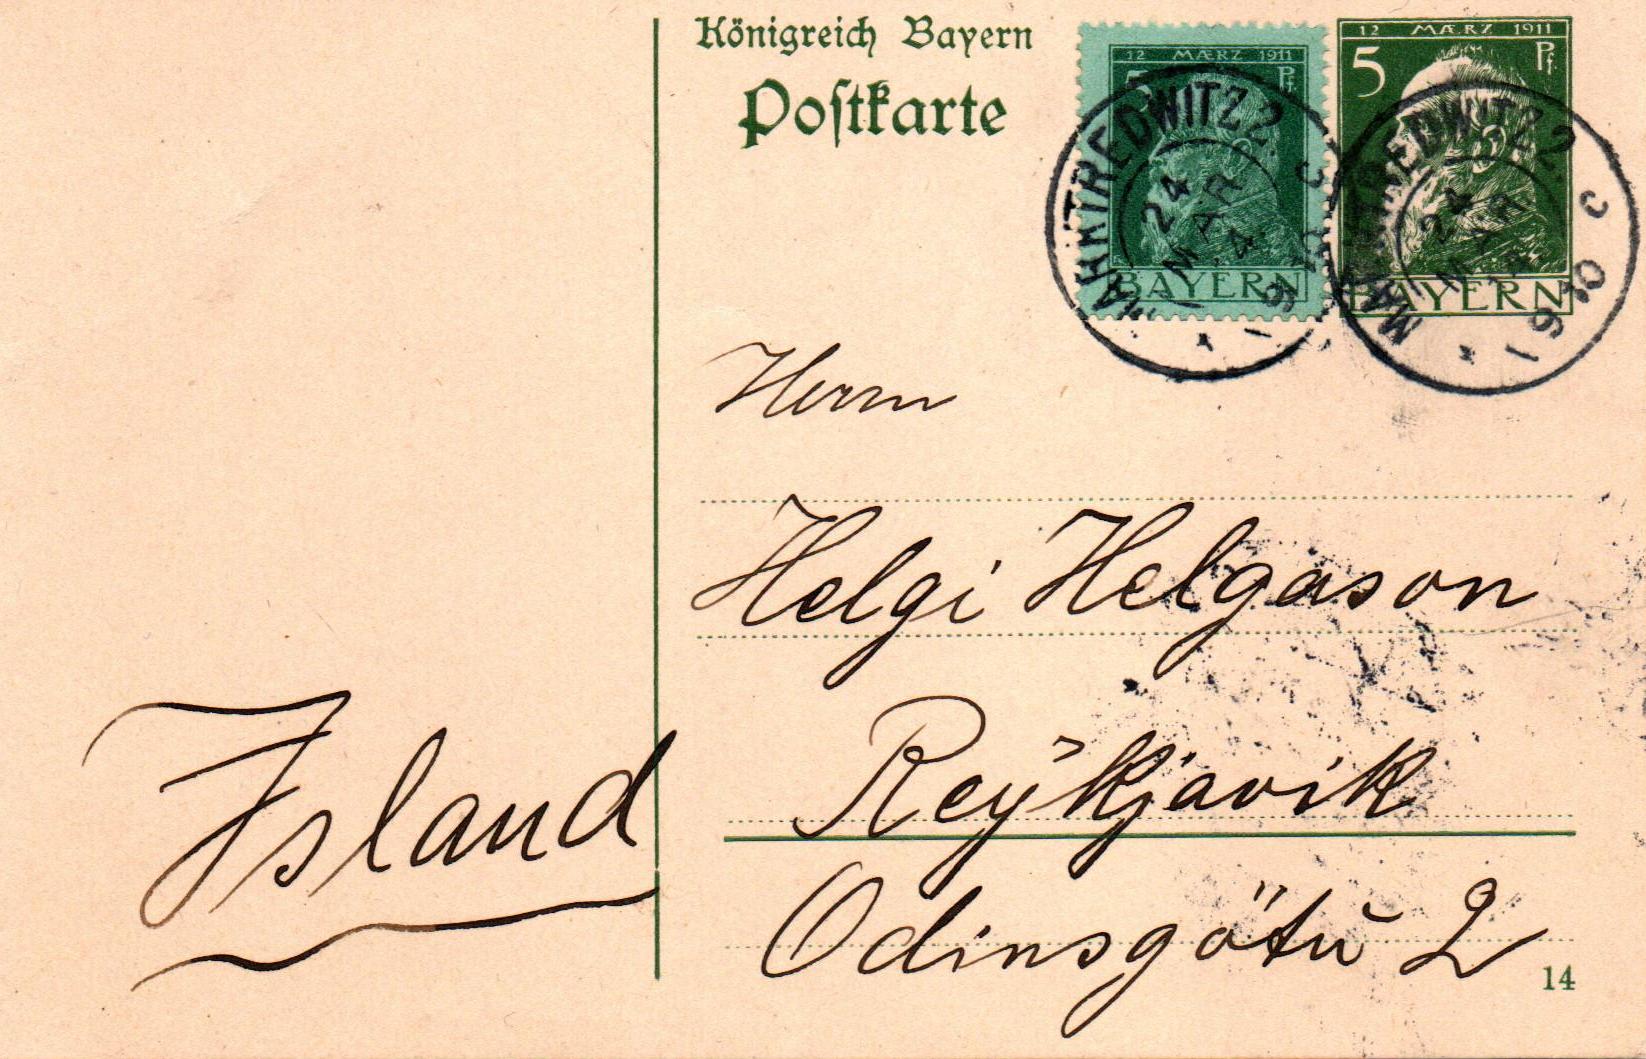 Königreich Bayern
Postkarte
12 MÆRZ 1911
5 Pf.
BAYERN
12 MÆRZ 1911
5 Pf.
BAYERN
MARKTREDWITZ 2.
24
MAR
MARKTREDWITZ 2.
24
MAR
Herrn
Helgi Helgason
Reykjavik
Odinsgötu 2
Island
14